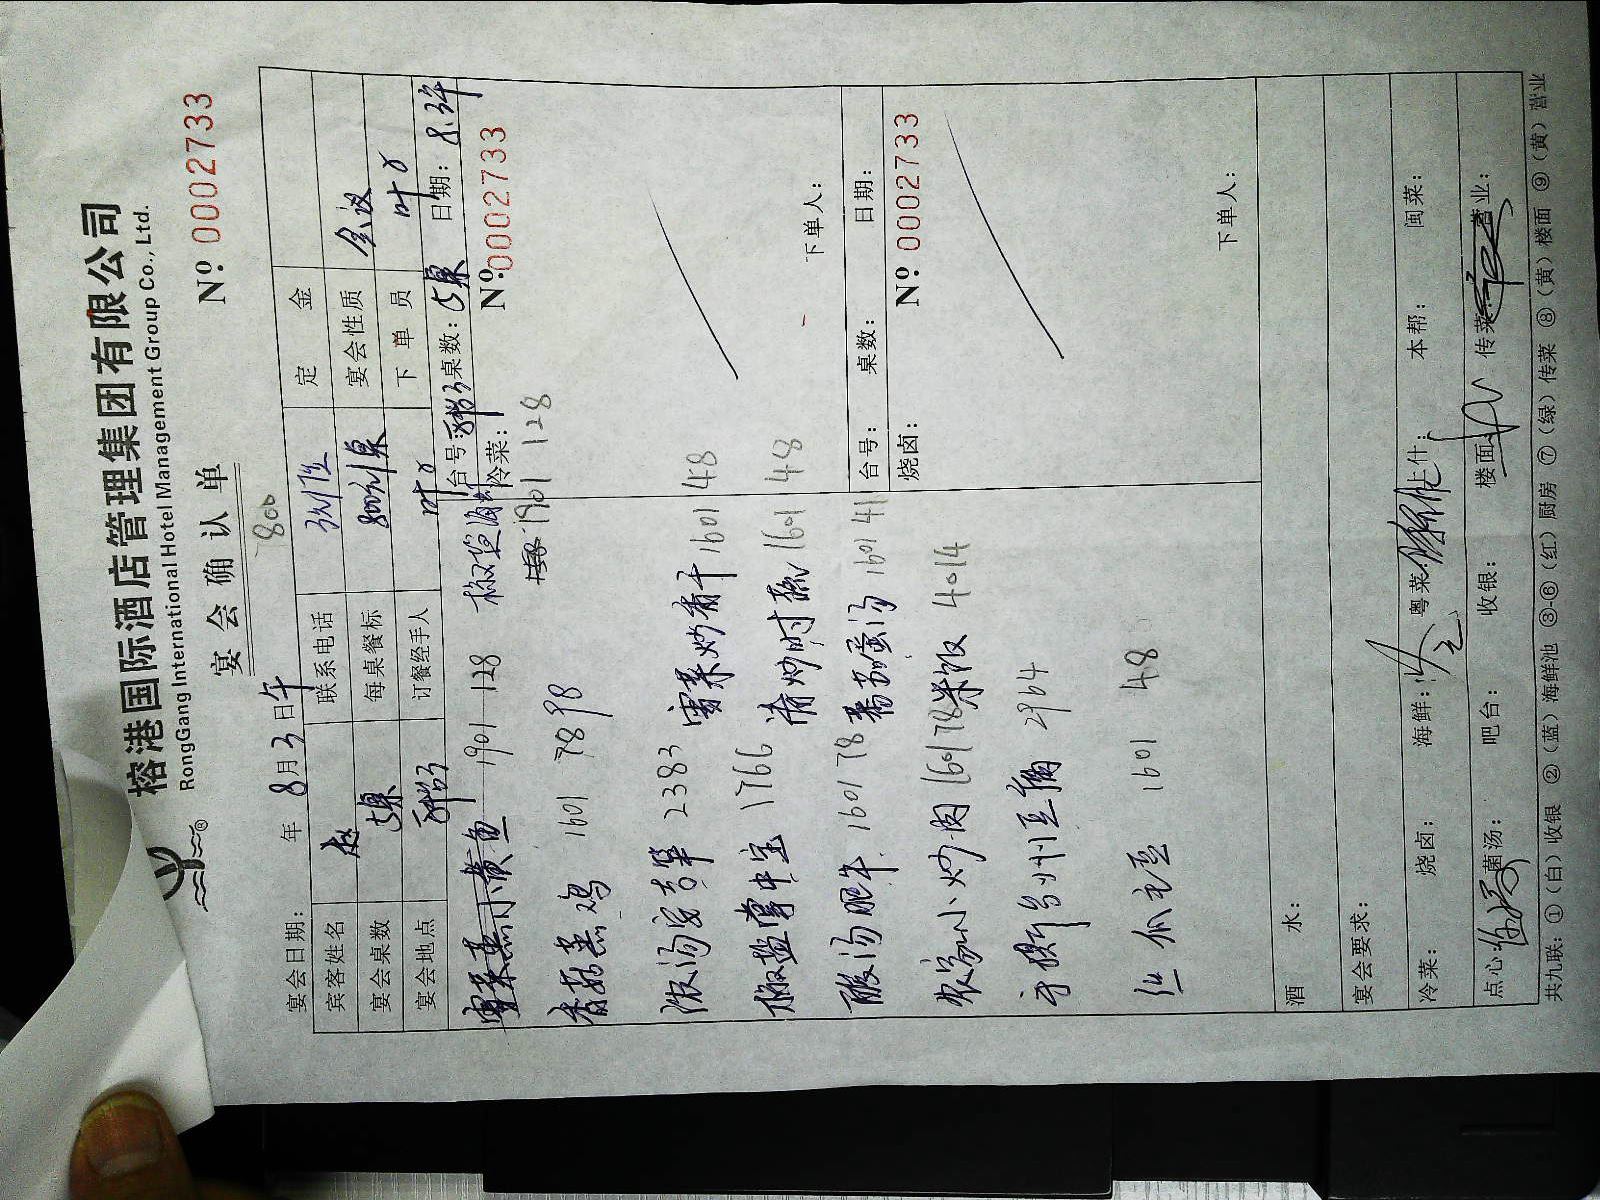 榕港国际酒店管理集团有限公司
RongGang International Hotel Management Group Co., Ltd.
®
宴会确认单
Nº: 0002733
800
宴会日期: 年 8月3日午
宾客姓名 赵 联系电话 定金
宴会桌数 5桌 每桌餐标 800元/桌 宴会性质 会议
宴会地点 订餐经手人 叶 下单员 叶
台号: 桌数: 5桌 日期: 8.3午
冷菜: Nº: 0002733
雪菜蒸小黄鱼 1901 128
椒盐海虾
1901 128
香菇蒸鸡 1601 78 98
浓汤娃 2383 雪菜炒香干 1601 48
椒盐掌中宝 1766 清炒时蔬 1601 48
下单人:
酸汤肥牛 1601 78 番茄蛋汤 1601 41
台号: 桌数: 日期:
烧卤: Nº: 0002733
农家小炒肉 1601 78 米饭 4014
手撕 豆腐 2964
丝瓜毛豆 1601 48
下单人:
酒水:
宴会要求:
冷菜: 烧卤: 海鲜: 粤菜: 上什: 本帮: 闽菜:
点心: 菌汤: 吧台: 收银: 楼面: 传菜: 营业:
共九联: ①(白)收银 ②(蓝)海鲜池 ③-⑥(红)厨房 ⑦(绿)传菜 ⑧(黄)楼面 ⑨(黄)营业